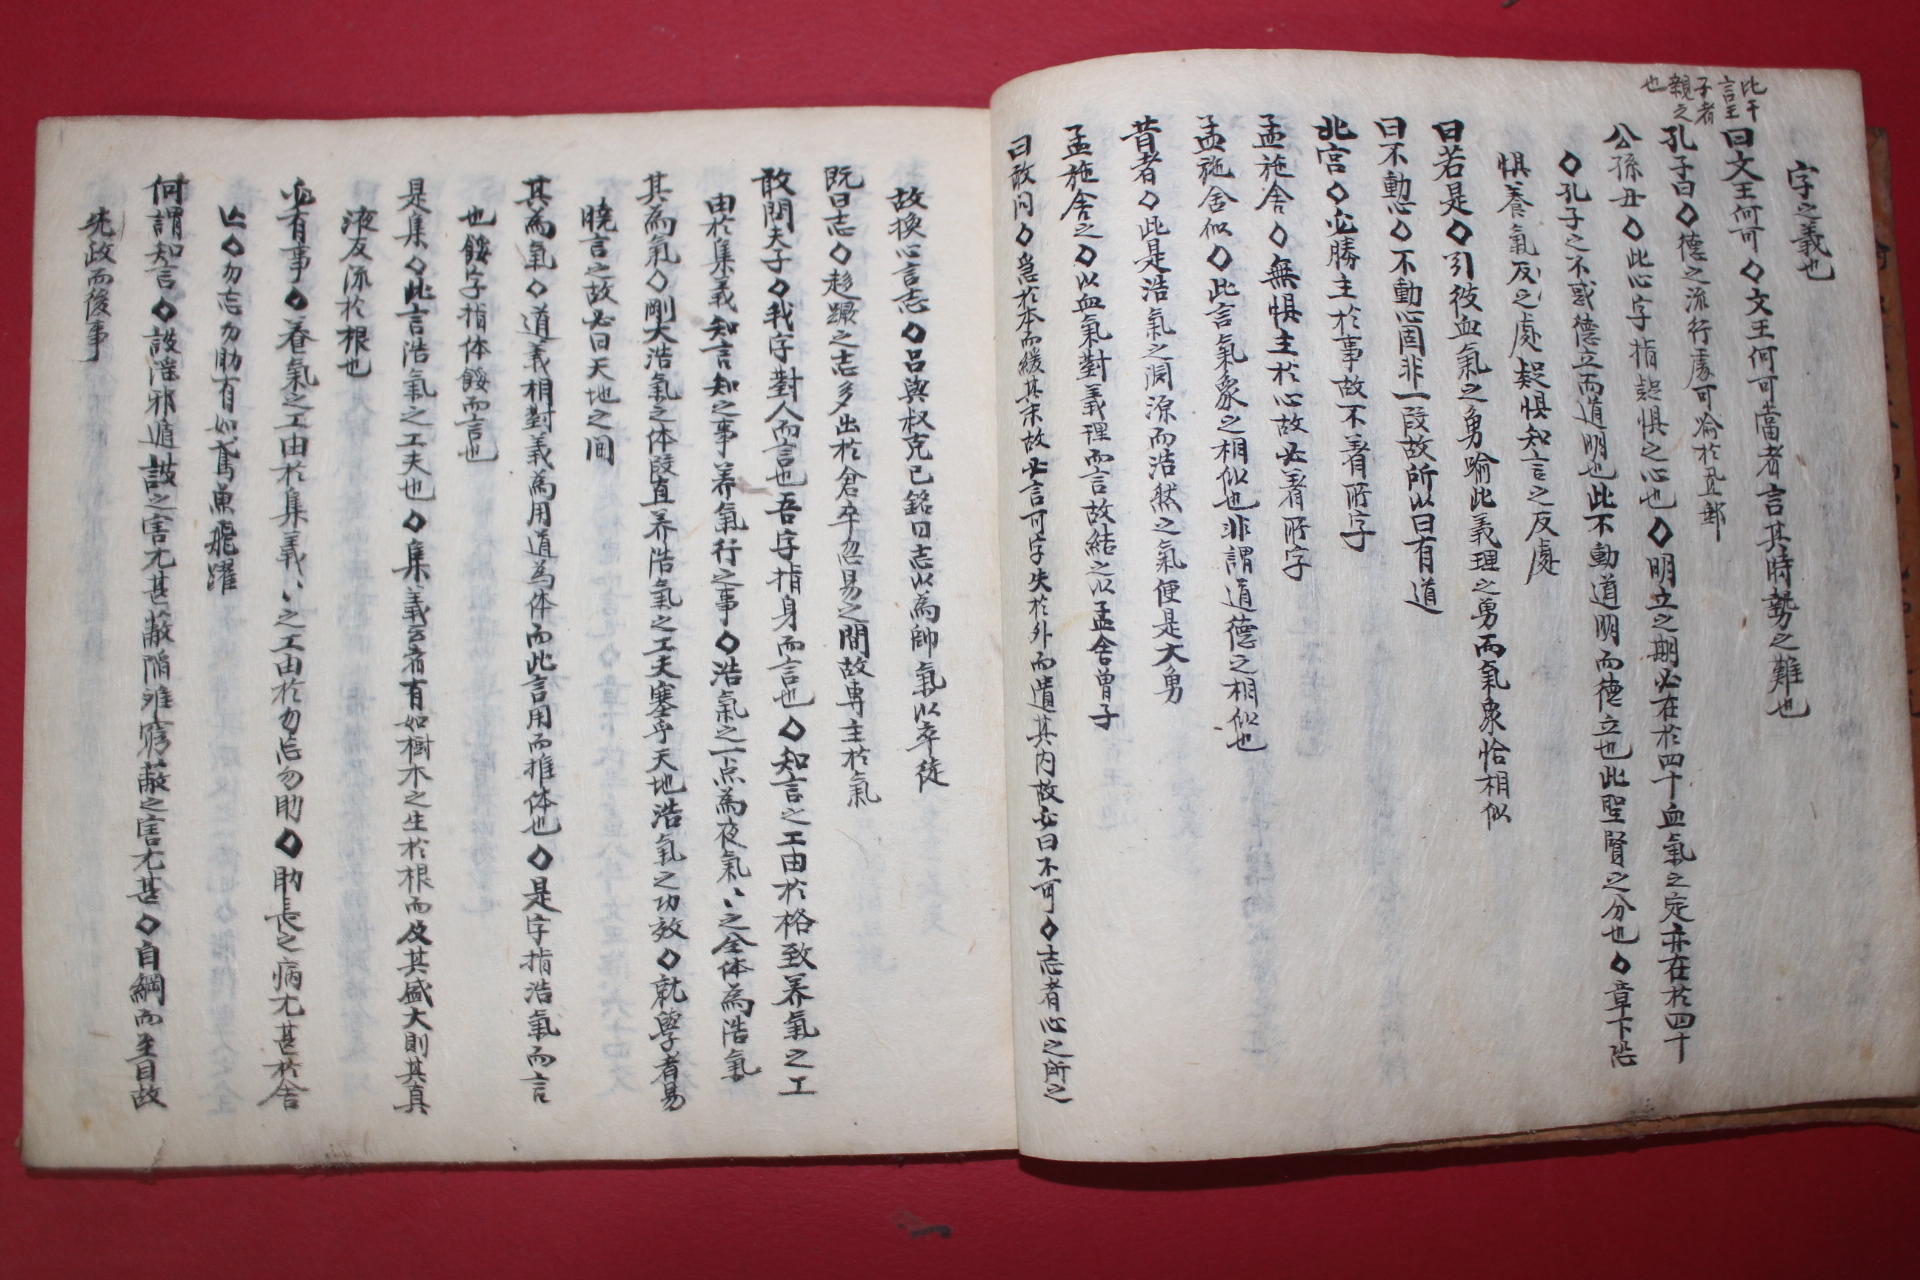 比干
言王
子者
親之
也
字之義也
曰文王何可◇文王何可當者言其時勢之難也
孔子曰◇德之流行處可喩於孔郵
公孫丑◇此心字指疑惧之心也◇明立之期必在於四十血氣之定亦在於四十
◇孔子之不惑德立而道明也此不動道明而德立也此聖賢之分也◇章下陞
惧養氣反之處疑惧知言之反處
曰若是◇引彼血氣之勇喩此義理之勇而氣象恰相似
曰不動心◇不動心固非一段故所以曰有道
北宮◇必勝主於事故不着所字
孟施舍◇無惧主於心故必着所字
孟施舍似◇此言氣象之相似也非謂道德之相似也
昔者◇此是浩氣之関源而浩然之氣便是大勇
孟施舍之◇以血氣對義理而言故結之以孟舍曾子
曰敢问◇急於本而緩其末故必言可字失於外而遺其内故必曰不可◇志者心之所之
故換心言志◇呂與叔克己銘曰志以為帥氣以卒徒
既曰志◇趍蹶之志多出於倉卒忽易之間故專主於氣
敢問夫子◇我字對人而言也吾字指身而言也◇知言之工由於格致养氣之工
由於集義知言知之事养氣行之事◇浩氣之一点為夜氣〻之全体為浩氣
其為氣◇剛大浩氣之体段直养浩氣之工夫塞乎天地浩氣之功效◇就學者易
曉言之故必曰天地之间
其為氣◇道義相對義為用道為体而此言用而推体也◇是字指浩氣而言
也餒字指体餒而言也
是集◇此言浩氣之工夫也◇集義云者有如樹木之生於根而及其盛大則其真
液反流於根也
必有事◇養氣之工由於集義〻之工由於勿忘勿助◇助長之病尤甚於舍
亡◇勿忘勿助有如鳶魚飛躍
何謂知言◇詖淫邪遁詖之害尤甚蔽陷離窮蔽之害尤甚◇自綱而至目故
先政而後事